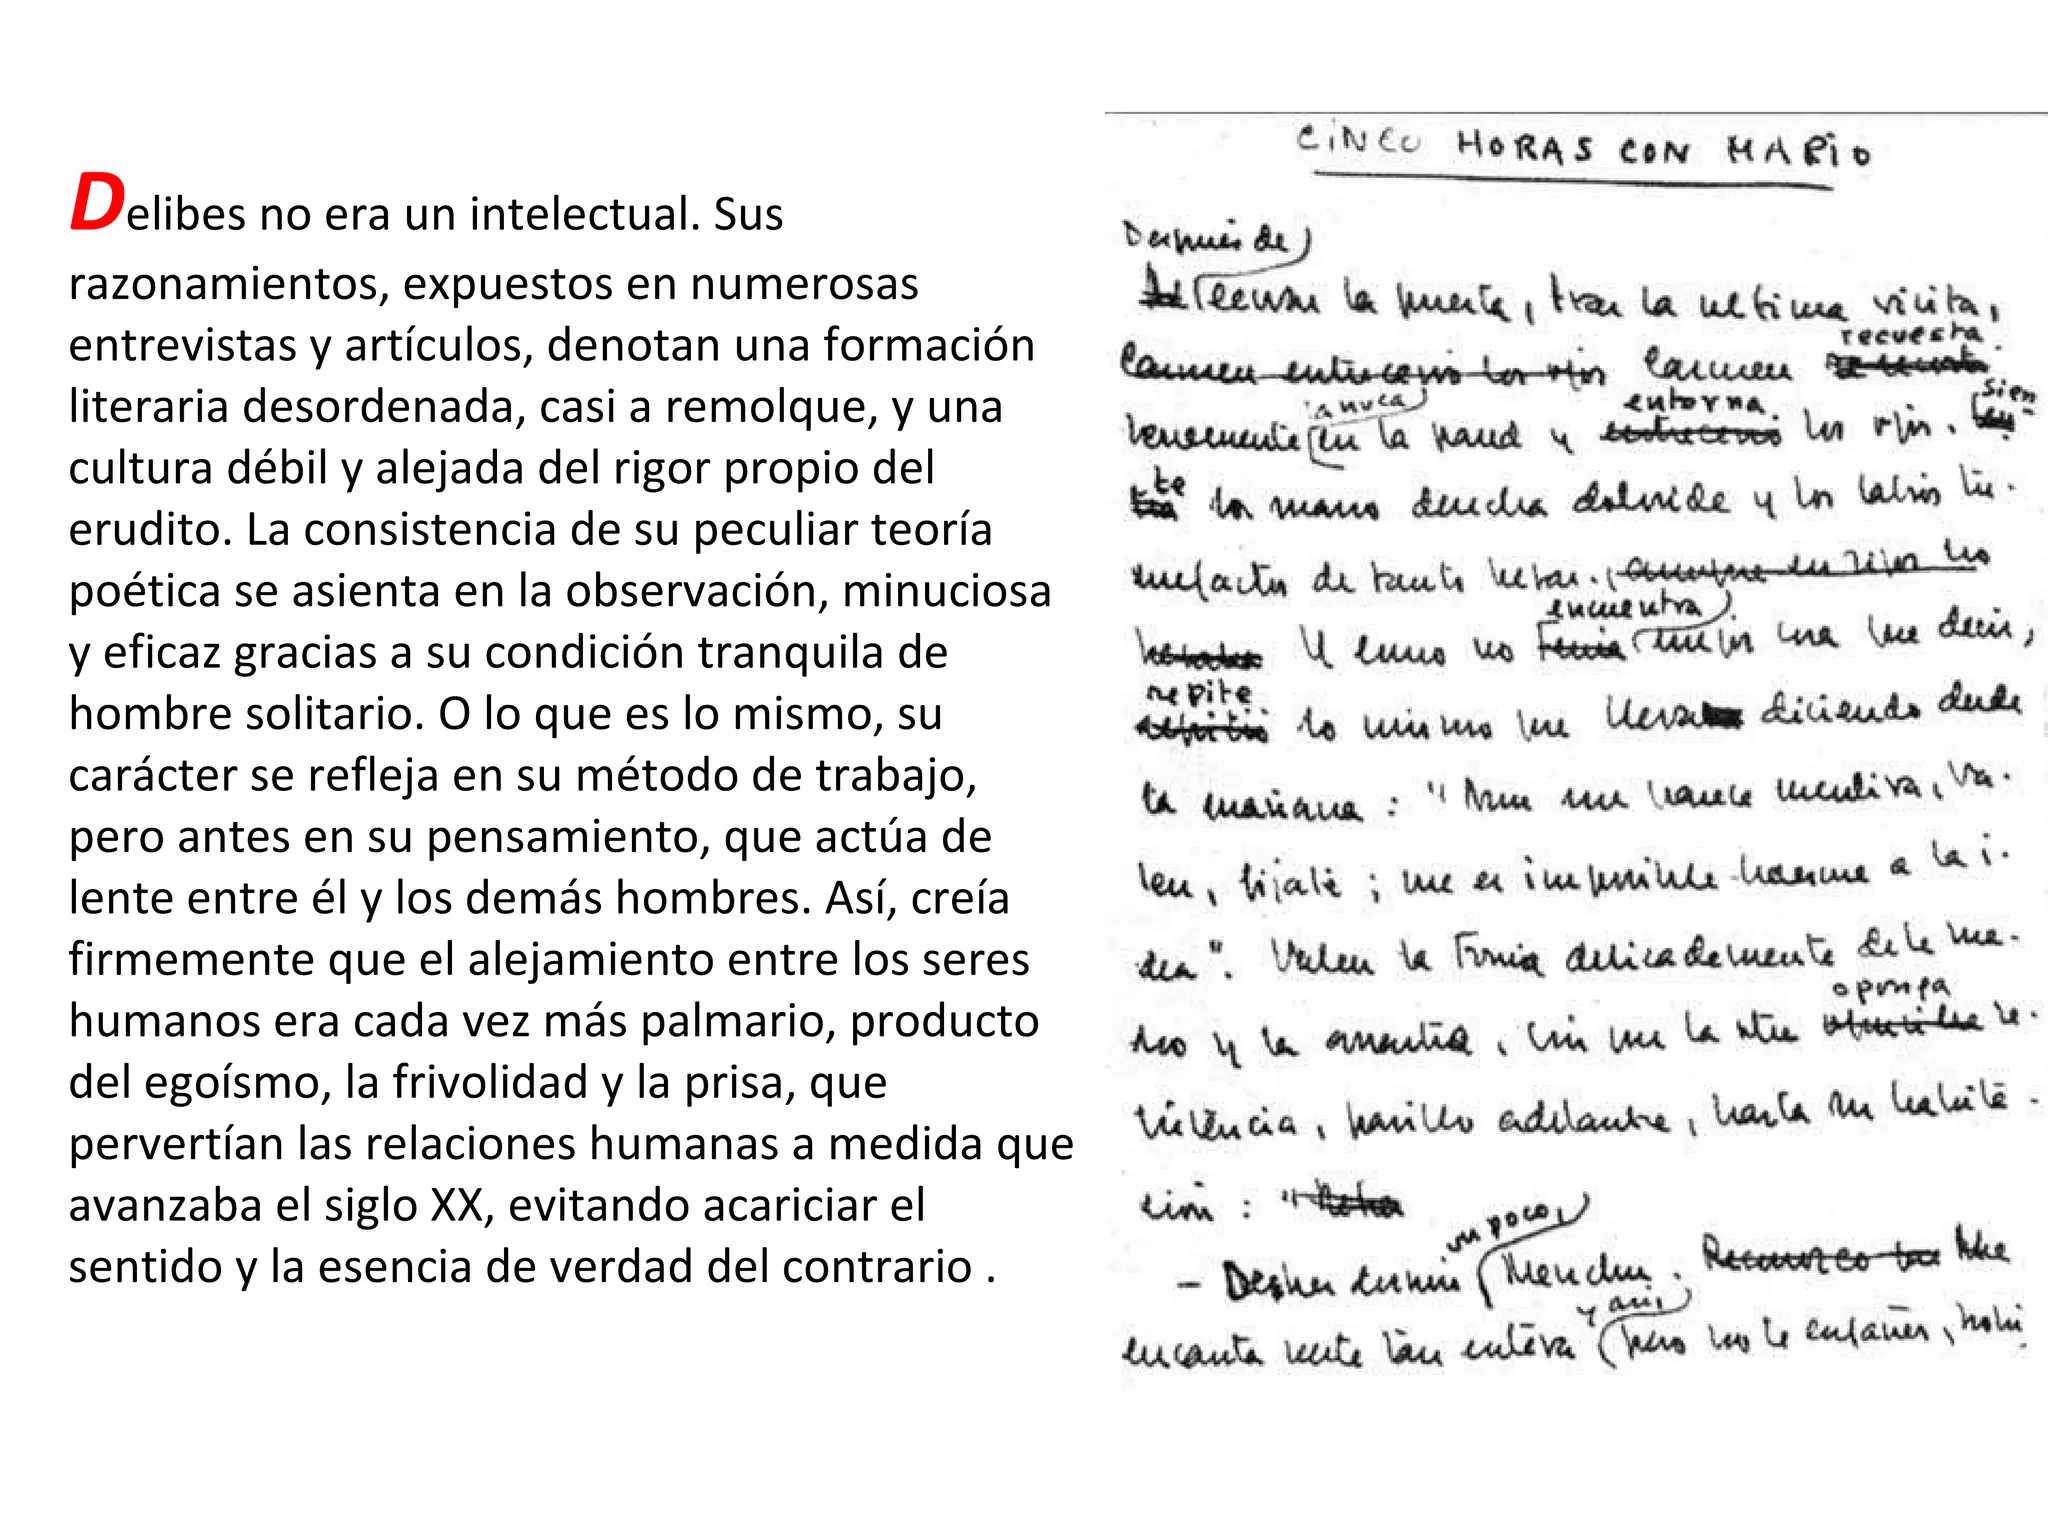 Delibes no era un intelectual. Sus
razonamientos, expuestos en numerosas
entrevistas y artículos, denotan una formación
literaria desordenada, casi a remolque, y una
cultura débil y alejada del rigor propio del
erudito. La consistencia de su peculiar teoría
poética se asienta en la observación, minuciosa
y eficaz gracias a su condición tranquila de
hombre solitario. O lo que es lo mismo, su
carácter se refleja en su método de trabajo,
pero antes en su pensamiento, que actúa de
lente entre él y los demás hombres. Así, creía
firmemente que el alejamiento entre los seres
humanos era cada vez más palmario, producto
del egoísmo, la frivolidad y la prisa, que
pervertían las relaciones humanas a medida que
avanzaba el siglo XX, evitando acariciar el
sentido y la esencia de verdad del contrario .
CINCO HORAS CON MARIO
Después de
cerrar la puerta, tras la ultima visita,
recuesta
Carmen entrecerró los ojos Carmen
anuca entorna sien
levemente en la pared y los ojos.
te
la mano derecha dolorida y los labios tu-
mefactos de tanto besar.
encuentra
Y como no mejor cosa que decir,
repite
lo mismo que lleva diciendo desde
la mañana: "Aun me parece mentira, Ma-
rio, fíjate; me es imposible hacerme a la i-
dea". Valen la toma delicadamente de la ma-
oponga
no y la arrastra, sin que la otra re-
sistencia, pasillo adelante, hasta su habita-
ción: "
un poco,
- Debes dormir Menchu. Me
y así,
encanta verte tan entera pero no te engañes, bobi